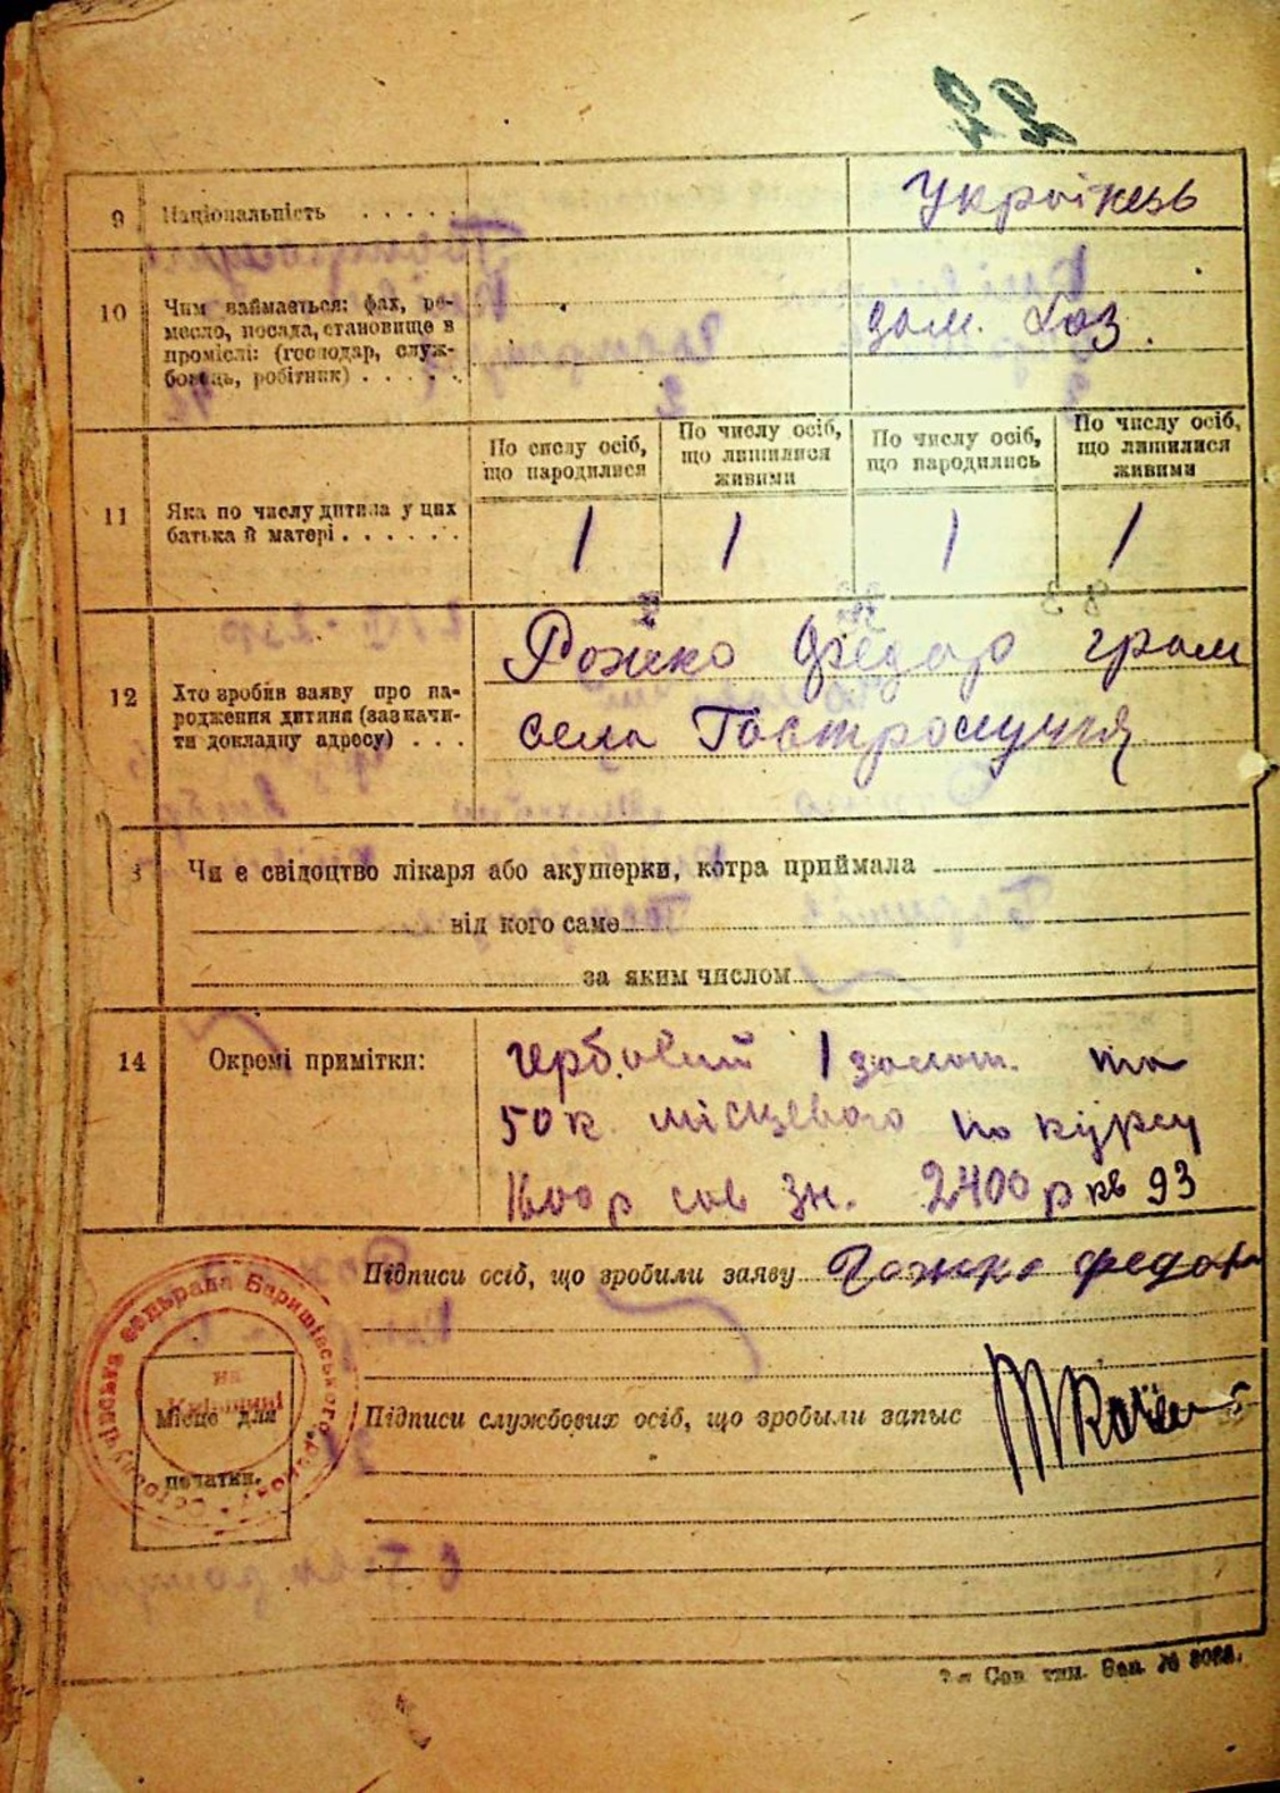 22
9 Національність . . . . .
Україкець
10 Чим займається: фах, ре-
месло, посада, становище в
промислі: (господар, служ-
бовець, робітник) . . . . .
дом. Хоз.
11 Яка по числу дитина у цих
батька й матері . . . . . .
По числу осіб,
що народилися
По числу осіб,
що лишилися
живими
По числу осіб,
що народились
По числу осіб,
що лишилися
живими
1 1 1 1
12 Хто зробив заяву про на-
родження дитини (зазначи-
ти докладну адресу) . . .
Рожко Федар гром
села Гостролуччя
Чи є свідоцтво лікаря або акушерки, котра приймала
від кого саме
за яким числом
14 Окремі примітки:
1 золот. та
50 к. місцевого по курсу
1600 р сов зн. 2400 р кв 93
Підписи осіб, що зробили заяву Рожко Федор
Підписи службових осіб, що зробыли запыс
Місце для
печатки.
сельрада Баришівського району
на Київщині
Сов. тип. Зап. №